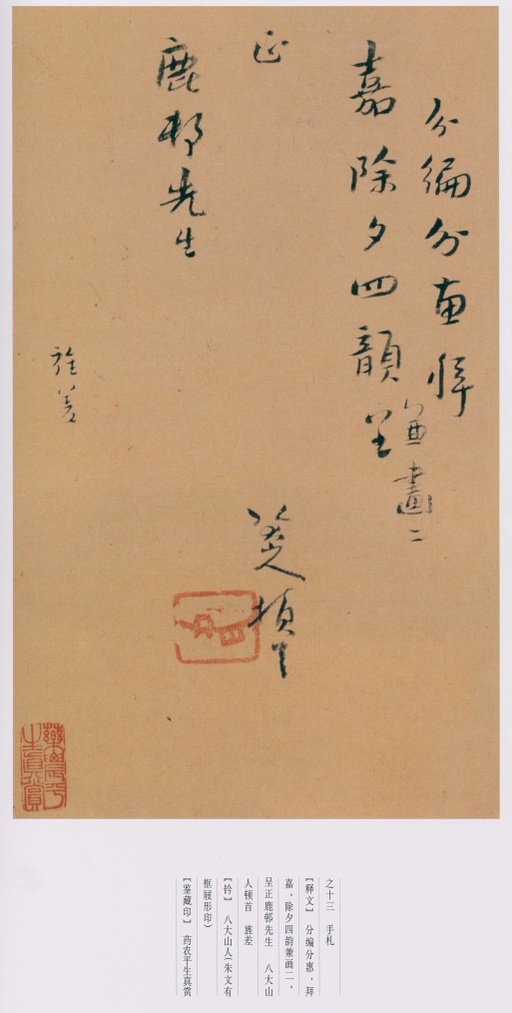 分編分惠拜
嘉除夕四韻
兼畫二
呈
正
八大山人頓首
鹿邨先生
藥農平
生真賞
之十三 手札
【释文】 分编分惠，拜
嘉，除夕四韵兼画二，
呈正鹿邨先生 八大山
人顿首 旌差
【钤】 八大山人(朱文有
框屐形印)
【鉴藏印】 药农平生真赏